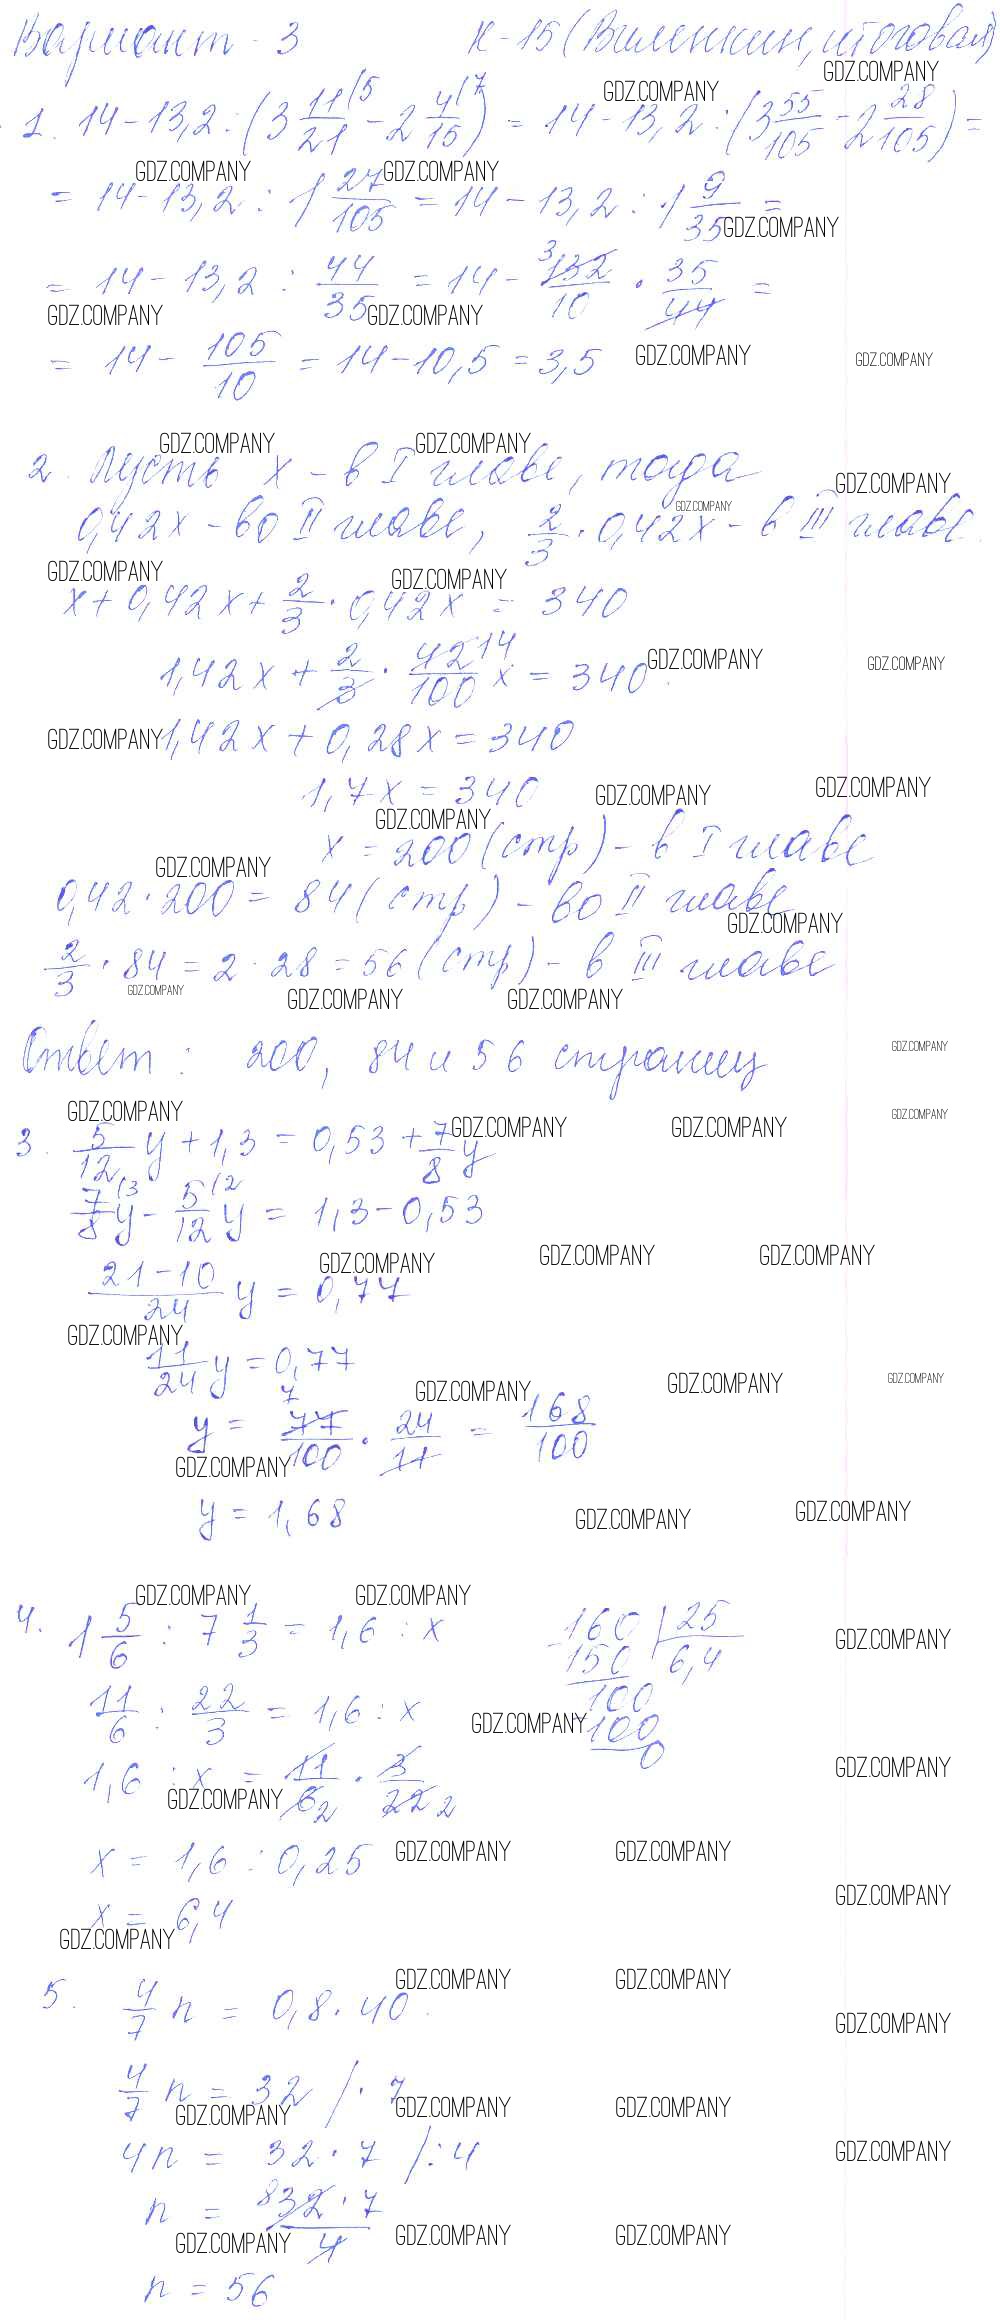 Вариант - 3 К-15 (Виленкин, итоговая)
GDZ.COMPANY
GDZ.COMPANY
1. 14 - 13,2 : (3 11/21 (5 - 2 4/15 (7) = 14 - 13,2 : (3 55/105 - 2 28/105) =
GDZ.COMPANY GDZ.COMPANY
= 14 - 13,2 : 1 27/105 = 14 - 13,2 : 1 9/35 =
GDZ.COMPANY
= 14 - 13,2 : 44/35 = 14 - 3 132/10 · 35/44 =
GDZ.COMPANY GDZ.COMPANY
= 14 - 105/10 = 14 - 10,5 = 3,5
GDZ.COMPANY GDZ.COMPANY
GDZ.COMPANY GDZ.COMPANY
2. Пусть x - в I главе, тогда
GDZ.COMPANY
GDZ.COMPANY
0,42x - во II главе, 2/3 · 0,42x - в III главе.
GDZ.COMPANY GDZ.COMPANY
x + 0,42x + 2/3 · 0,42x = 340
1,42x + 2/3 · 42 14/100 x = 340
GDZ.COMPANY GDZ.COMPANY
GDZ.COMPANY
1,42x + 0,28x = 340
1,7x = 340
GDZ.COMPANY GDZ.COMPANY
GDZ.COMPANY
x = 200 (стр) - в I главе
GDZ.COMPANY
0,42 · 200 = 84 (стр) - во II главе
GDZ.COMPANY
2/3 · 84 = 2 · 28 = 56 (стр) - в III главе
GDZ.COMPANY GDZ.COMPANY GDZ.COMPANY
Ответ: 200, 84 и 56 страниц
GDZ.COMPANY
GDZ.COMPANY GDZ.COMPANY
3. 5/12 y + 1,3 = 0,53 + 7/8 y
GDZ.COMPANY GDZ.COMPANY
7/8 (3 y - 5/12 (2 y = 1,3 - 0,53
GDZ.COMPANY GDZ.COMPANY GDZ.COMPANY
21-10/24 y = 0,77
GDZ.COMPANY
11/24 y = 0,77
GDZ.COMPANY GDZ.COMPANY GDZ.COMPANY
y = 7 77/100 · 24/11 = 168/100
GDZ.COMPANY
y = 1,68
GDZ.COMPANY GDZ.COMPANY
GDZ.COMPANY GDZ.COMPANY
4. 1 5/6 : 7 1/3 = 1,6 : x - 160 | 25
GDZ.COMPANY
150 6,4
11/6 : 22/3 = 1,6 : x 100
GDZ.COMPANY
100
0
1,6 : x = 11/6 2 · 3/22 2
GDZ.COMPANY
GDZ.COMPANY
x = 1,6 : 0,25
GDZ.COMPANY GDZ.COMPANY
GDZ.COMPANY
x = 6,4
GDZ.COMPANY
GDZ.COMPANY GDZ.COMPANY
5. 4/7 n = 0,8 · 40
GDZ.COMPANY
4/7 n = 32 / · 7
GDZ.COMPANY GDZ.COMPANY GDZ.COMPANY
4n = 32 · 7 / : 4
GDZ.COMPANY
n = 8 32 · 7/4
GDZ.COMPANY GDZ.COMPANY GDZ.COMPANY
n = 56